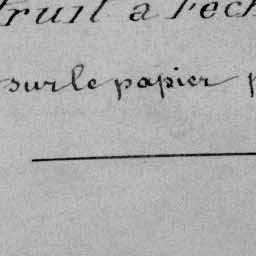 fruit à l'éch
sur le papier p